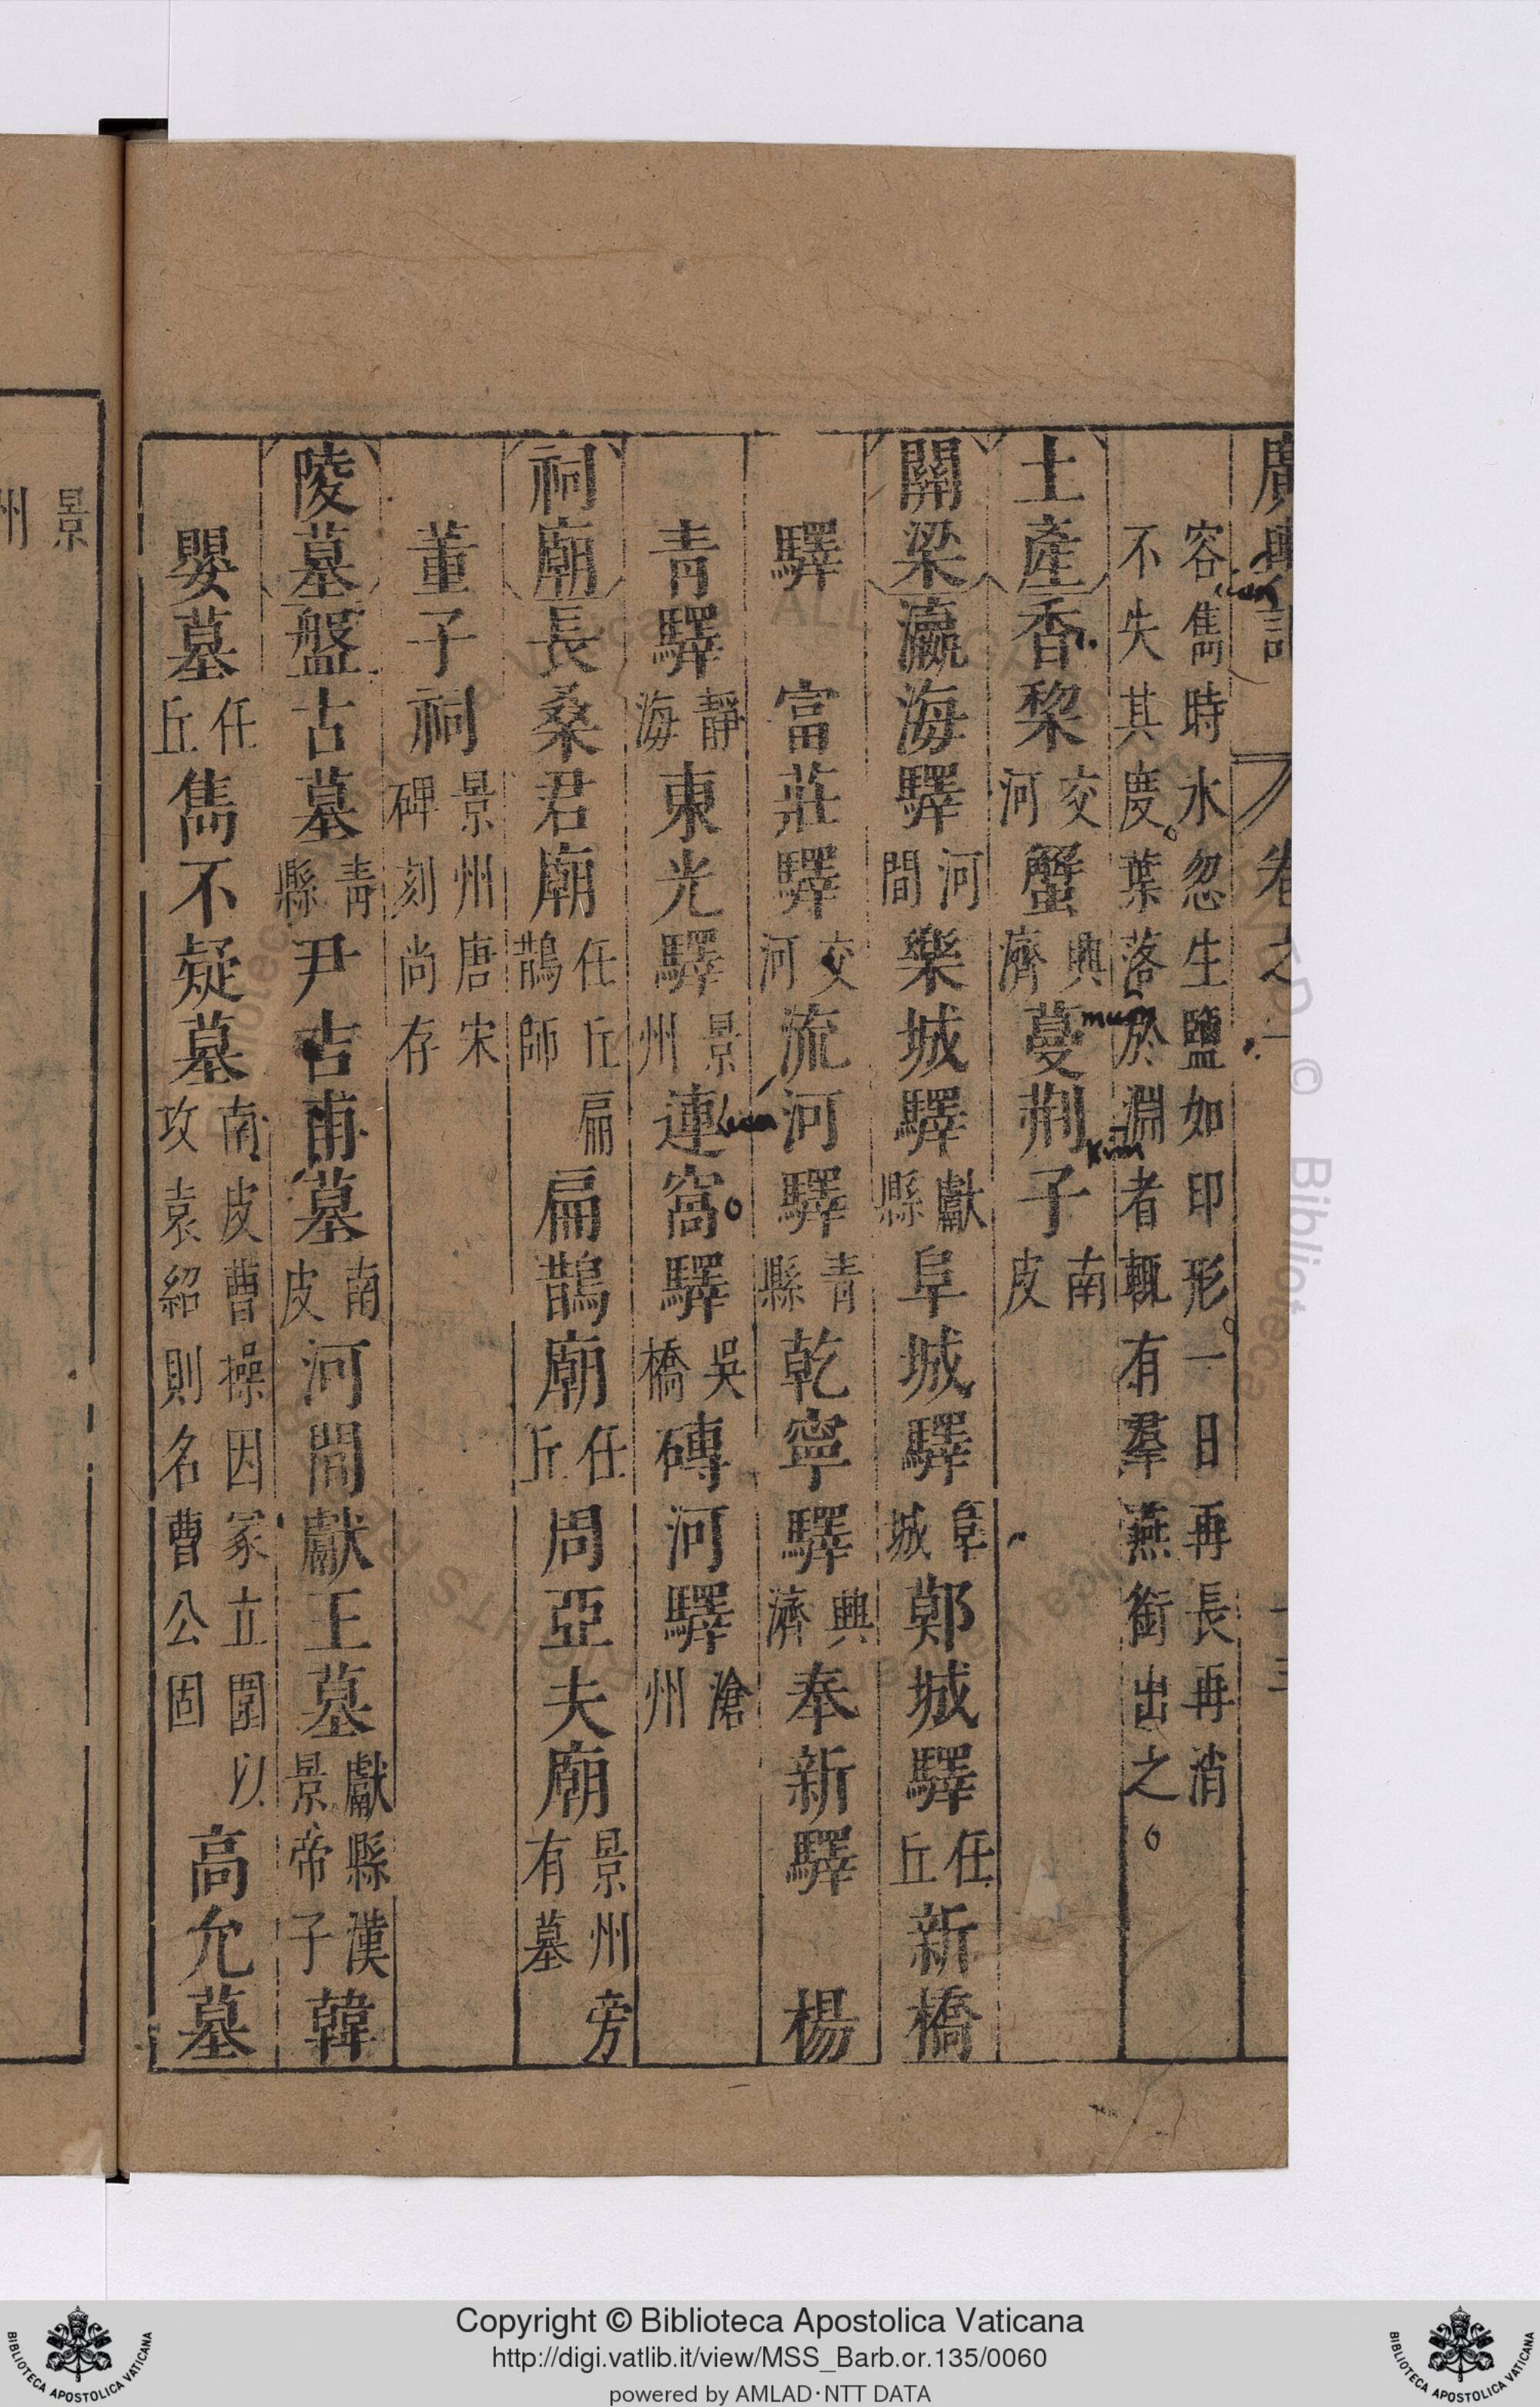 廣輿記 卷之一 十三
容雋時水忽生鹽如印形一日再長再消
不失其度葉落於淵者輒有羣燕銜出之
土產 香梨 交河 蟹 興濟 蔓荊子 南皮
關梁 瀛海驛 河間 樂城驛 獻縣 阜城驛 阜城 鄚城驛 任丘 新橋
驛 富莊驛 交河 流河驛 青縣 乾寧驛 興濟 奉新驛 楊
青驛 靜海 東光驛 景州 連窩驛 吳橋 磚河驛 滄州
祠廟 長桑君廟 任丘扁鵲師 扁鵲廟 任丘 周亞夫廟 景州旁有墓
董子祠 景州唐宋碑刻尚存
陵墓 盤古墓 青縣 尹吉甫墓 南皮 河間獻王墓 獻縣漢景帝子 韓
嬰墓 任丘 雋不疑墓 南皮曹操因冢立圍以攻袁紹則名曹公固 高允墓
景
州
muon
Kim
Copyright © Biblioteca Apostolica Vaticana
http://digi.vatlib.it/view/MSS_Barb.or.135/0060
powered by AMLAD·NTT DATA
BIBLIOTECA APOSTOLICA VATICANA
BIBLIOTECA APOSTOLICA VATICANA